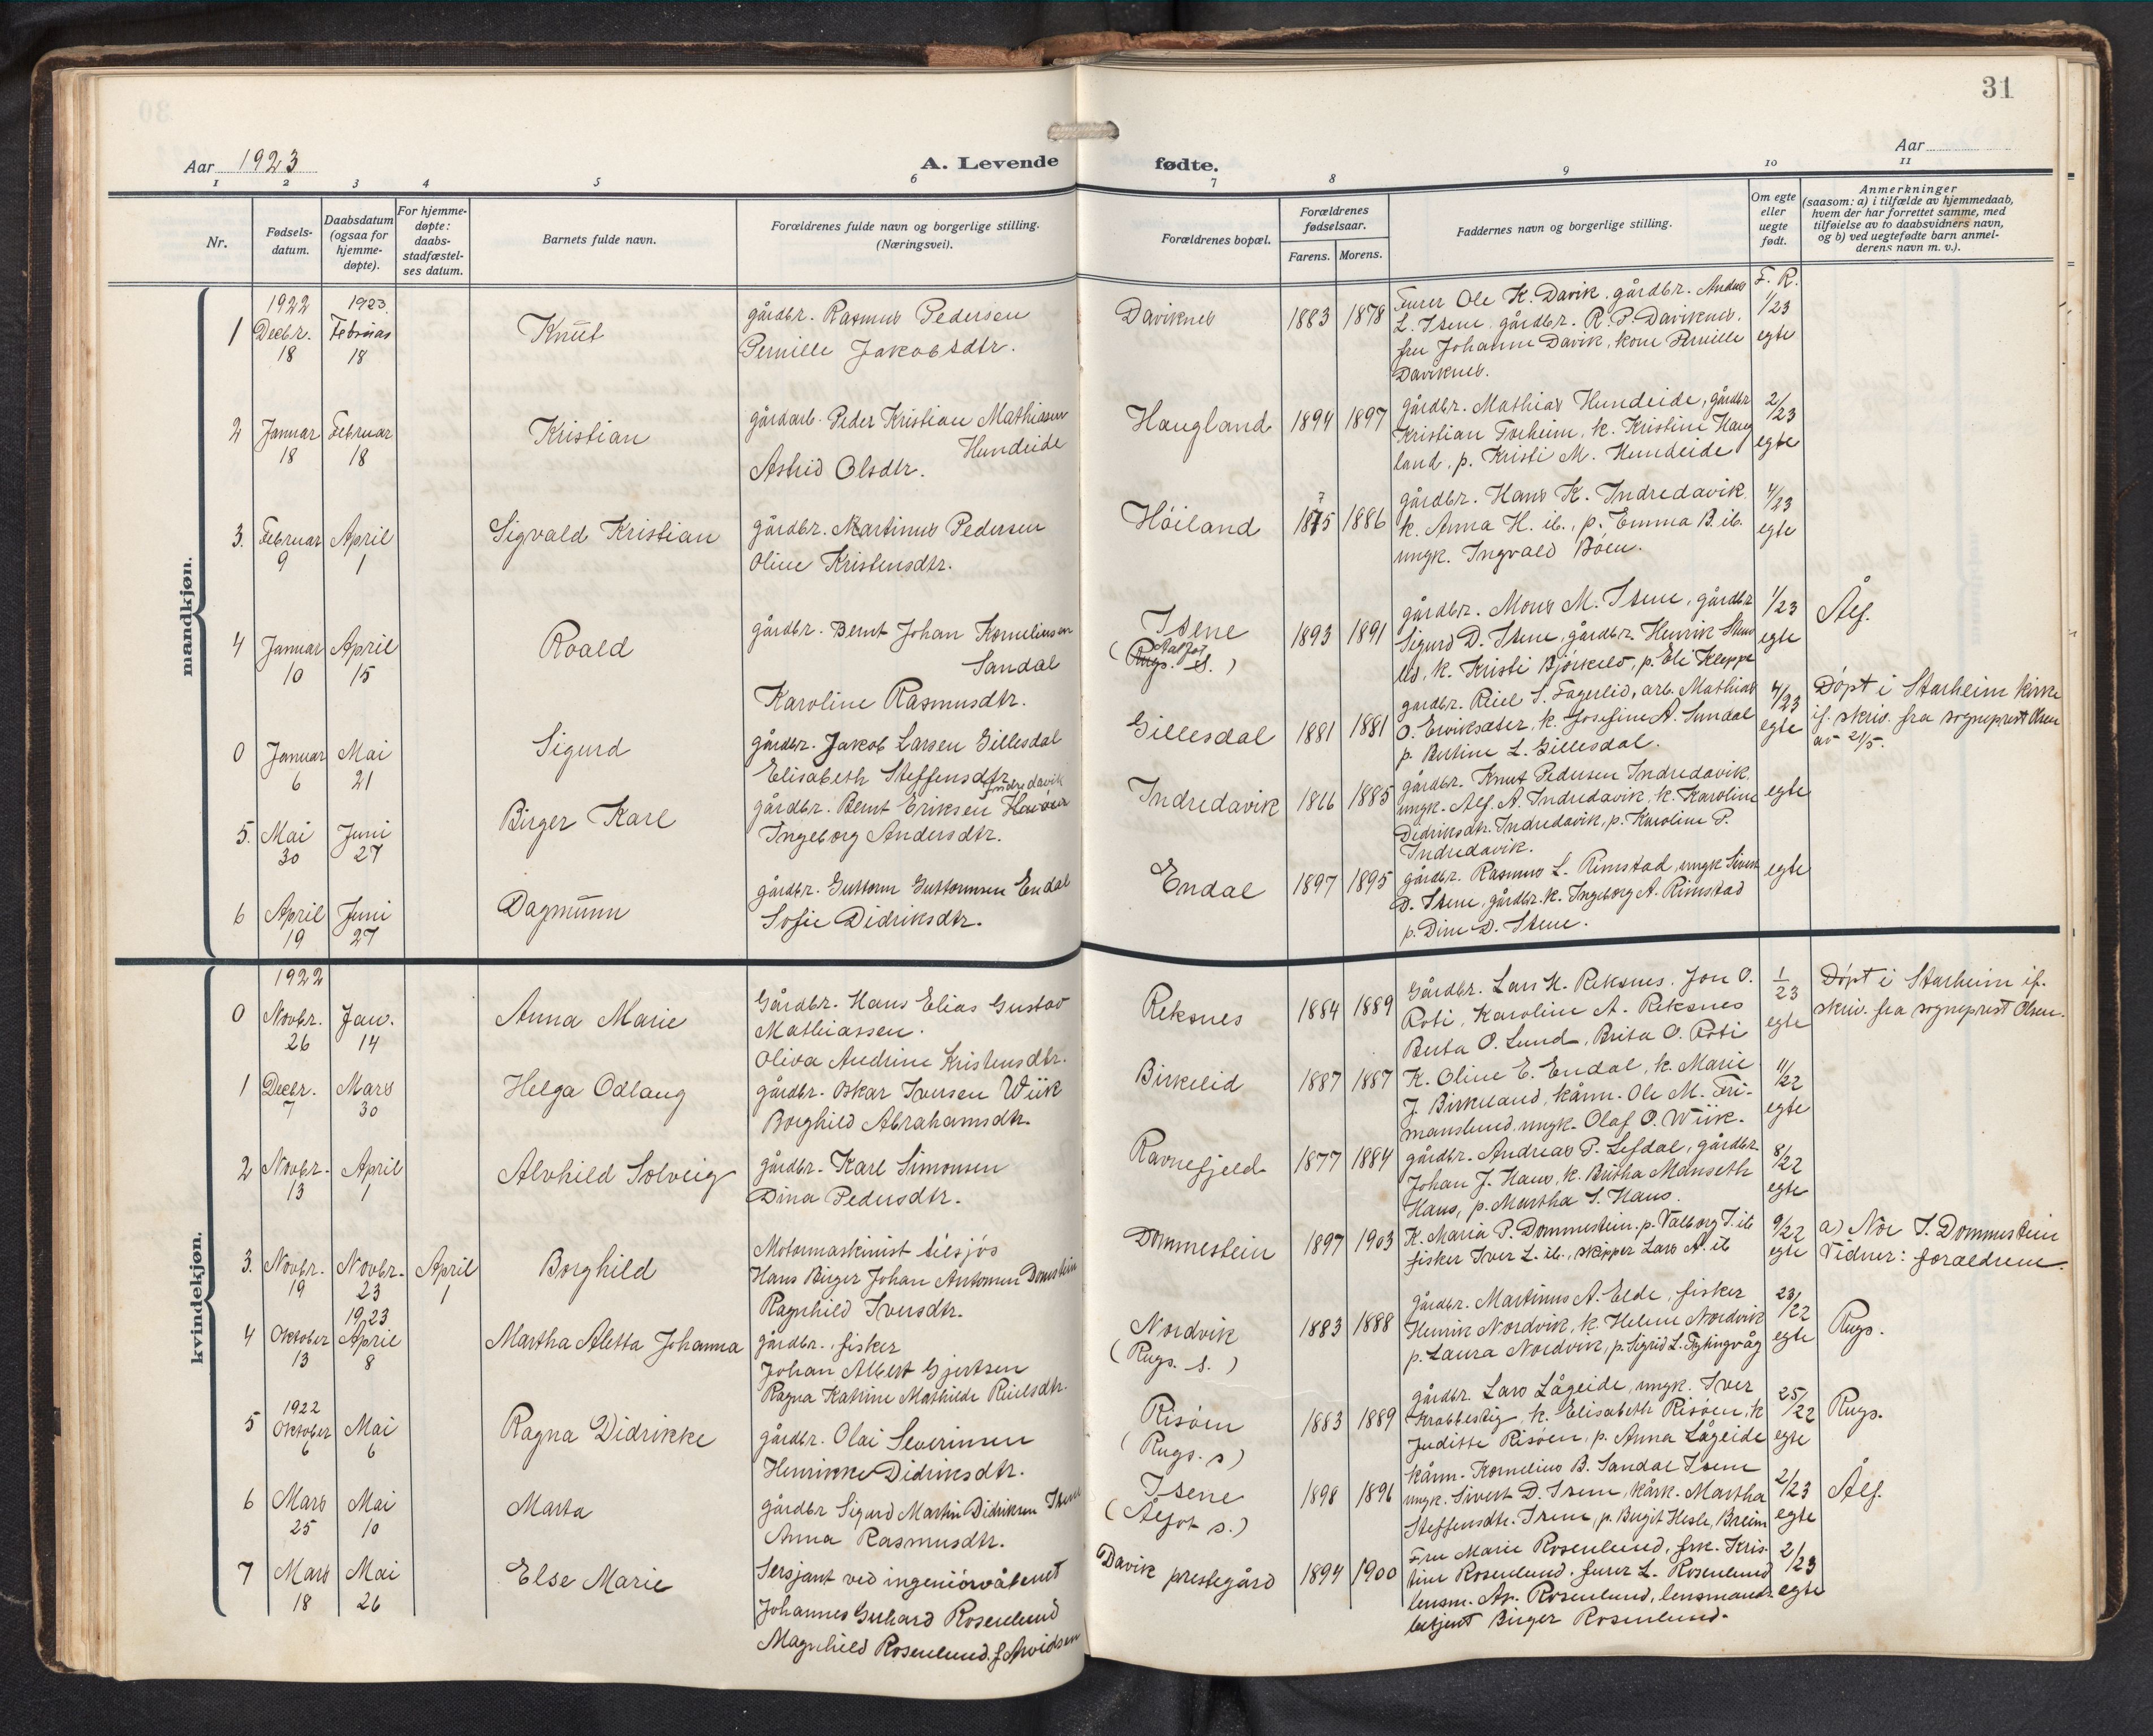 31
Aar 1923
A. Levende
fødte.
Aar
1 2 3 4 5 6 7 8 9 10 11
Nr.
Fødsels-
datum.
Daabsdatum
(ogsaa for
hjemme-
døpte).
For hjemme-
døpte:
daabs-
stadfæstel-
ses datum.
Barnets fulde navn.
Forældrenes fulde navn og borgerlige stilling.
(Næringsvei).
Forældrenes bopæl.
Forældrenes
fødselsaar.
Farens. Morens.
Faddernes navn og borgerlige stilling.
Om egte
eller
uegte
født.
Anmerkninger
(saasom: a) i tilfælde av hjemmedaab,
hvem der har forrettet samme, med
tilføielse av to daabsvidners navn,
og b) ved uegtefødte barn anmel-
derens navn m. v.).
mandkjøn.
1
1922
Decbr.
18
1923.
Februar
18
Knut
gårdbr. Rasmus Pedersen
Pernille Jakobsdtr.
Daviknes
1883 1878
Furer Ole K. Davik, gårdbr. Anders
L. Isene, gårdbr. R. P. Daviknes,
fru Johanne Davik, kone Pernille
Daviknes.
F. R.
1/23
egte
2
Januar
18
Februar
18
Kristian
gårdarb. Peder Kristian Mathiassen
Hundeide
Astrid Olsdtr.
Haugland
1894 1897
gårdbr. Mathias Hundeide, gårdbr
Kristian Torheim, k. Kristine Haug
land, p. Kristi M. Hundeide
2/23
egte
3.
Februar
9
April
1
Sigvald Kristian
gårdbr. Martinus Pedersen
Oline Kristensdtr.
Höiland
7
1875 1886
gårdbr. Hans K. Indredavik
k. Anna H. ib., p. Emma B. ib.
ungk. Ingvald Böen.
4/23
egte
4
Januar
10
April
15
Roald
gårdbr. Bernt Johan Korneliussen
Sandal
Karoline Rasmusdtr.
Isene
(Rugs. s.)
Aalfot
1893 1891
gårdbr. Mons M. Isene, gårdbr
Sigurd D. Isene, gårdbr. Henrik
k. Kristi p. Eli Kleppe
1/23
egte
Ålf.
0
Januar
6
Mai
21
Sigurd
gårdbr. Jakob Larsen Gillesdal
Elisabeth Steffensdtr
Gillesdal
1881 1881
gårdbr. S. Fagerlid, arb. Mathias
O. Erviksæter, k. Josefine A. Sundal
p. Bertine L. Gillesdal.
4/23
egte
Döpt i Starheim kirke
if. skriv. fra sogneprest Olsen
av 21/5.
5.
Mai
30
Juni
27
Birger Karl
Indredavik
gårdbr. Bernt Eriksen
Ingeborg Andersdtr.
Indredavik
1866 1885
gårdbr. Knut Pedersen Indredavik
ungk. Alf. A. Indredavik, k. Karoline
Didriksdtr. Indredavik, p. Karoline P.
Indredavik.
egte
6
April
19
Juni
27
Dagmunn
gårdbr. Guttorm Guttormsen Endal
Sofie Didriksdtr.
Endal
1897 1895
gårdbr. Rasmus L. Rimstad, ungk Sivert
D. Isene, gårdbr.k. Ingeborg A. Rimstad
p. Dine D. Isene.
egte
kvindekjøn.
0
1922
Novbr.
26
Jan.
14
Anna Marie
Gårdbr. Hans Elias Gustav
Mathiassen.
Oliva Andrine Kristensdtr.
Reksnes
1884 1889
Gårdbr. Lars H. Reksnes. Jon O.
Roti, Karoline A. Reksnes
Berta O. Lund, Brita O. Roti
1/23
egte
Döpt i Starheim if.
skriv. fra sogneprest Olsen.
1
Decbr.
7
Mars
30
Helga Odlaug
gårdbr. Oskar Iversen Wiik
Borghild Abrahamsdtr.
Birkelid
1887 1887
K. Oline E. Endal, k. Marie
J. Birkeland, kårm. Ole M. Fri-
manslund, ungk. Olaf O. Wiik.
11/22
egte
2
Novbr.
13
April
1
Alvhild Solveig
gårdbr. Karl Simonsen
Dina Pedersdtr.
Ravnefjeld
1877 1884
gårdbr. Andreas P. Lefdal, gårdbr.
Johan J. Haus, k. Britha Manseth
Haus, p. Martha S. Haus.
8/22
egte
3.
Novbr.
19
Novbr.
23
April
1
Borghild
Motormaskinist tilsjös
Hans Birger Johan Antonsen Domstein
Ragnhild Iversdtr.
Dommestein
1897 1903
K. Maria P. Dommestein. p. Valborg I. ib
fisker Iver L. ib., skipper Lars A. ib
9/22
egte
a) Nor I. Dommestein
Vidner: foreldrene.
4
Oktober
13
1923
April
8
Martha Aletta Johanna
gårdbr., fisker
Johan Albert Gjertsen
Ragna Katrine Mathilde Reielsdtr.
Nordvik
(Rugs. s.)
1883 1888
gårdbr. Martinus A. Elde, fisker
Henrik Nordvik, k. Helene Nordvik
p. Laura Nordvik, p. Sigrid L.
23/22
egte
Rugs.
5
1922
Oktober
6
Mai
6
Ragna Didrikke
gårdbr. Olai Severinsen
Henrikke Didriksdtr.
Risöen
(Rugs. s)
1883 1889
gårdbr. Lars Lågeide, ungk. Iver
Krabbestig, k. Elisabeth Risöen, k
Juditte Risöen, p. Anna Lågeide
25/22
egte
Rugs.
6
Mars
25
Mai
10
Marta
gårdbr Sigurd Martin Didriksen Isene
Anna Rasmusdtr.
Isene
(Ålfot s.)
1898 1896
kårm. Kornelius B. Sandal Isene
ungk. Sivert D. Isene, kårk. Martha
Steffensdtr. Isene, p. Birgit Hesle, Breim
2/23
egte
Ålf.
7
Mars
18
Mai
26
Else Marie
Sersjant ved ingeniörvåbenet
Johannes Gerhard Rosenlund
Magnhild Rosenlund f. Arvidsen
Davik prestegård
1894 1900
Fru Marie Rosenlund, frk. Kris-
tine Rosenlund, furer L. Rosenlund
lensm. Ap. Rosenlund, lensmands-
betjent Birger Rosenlund.
2/23
egte